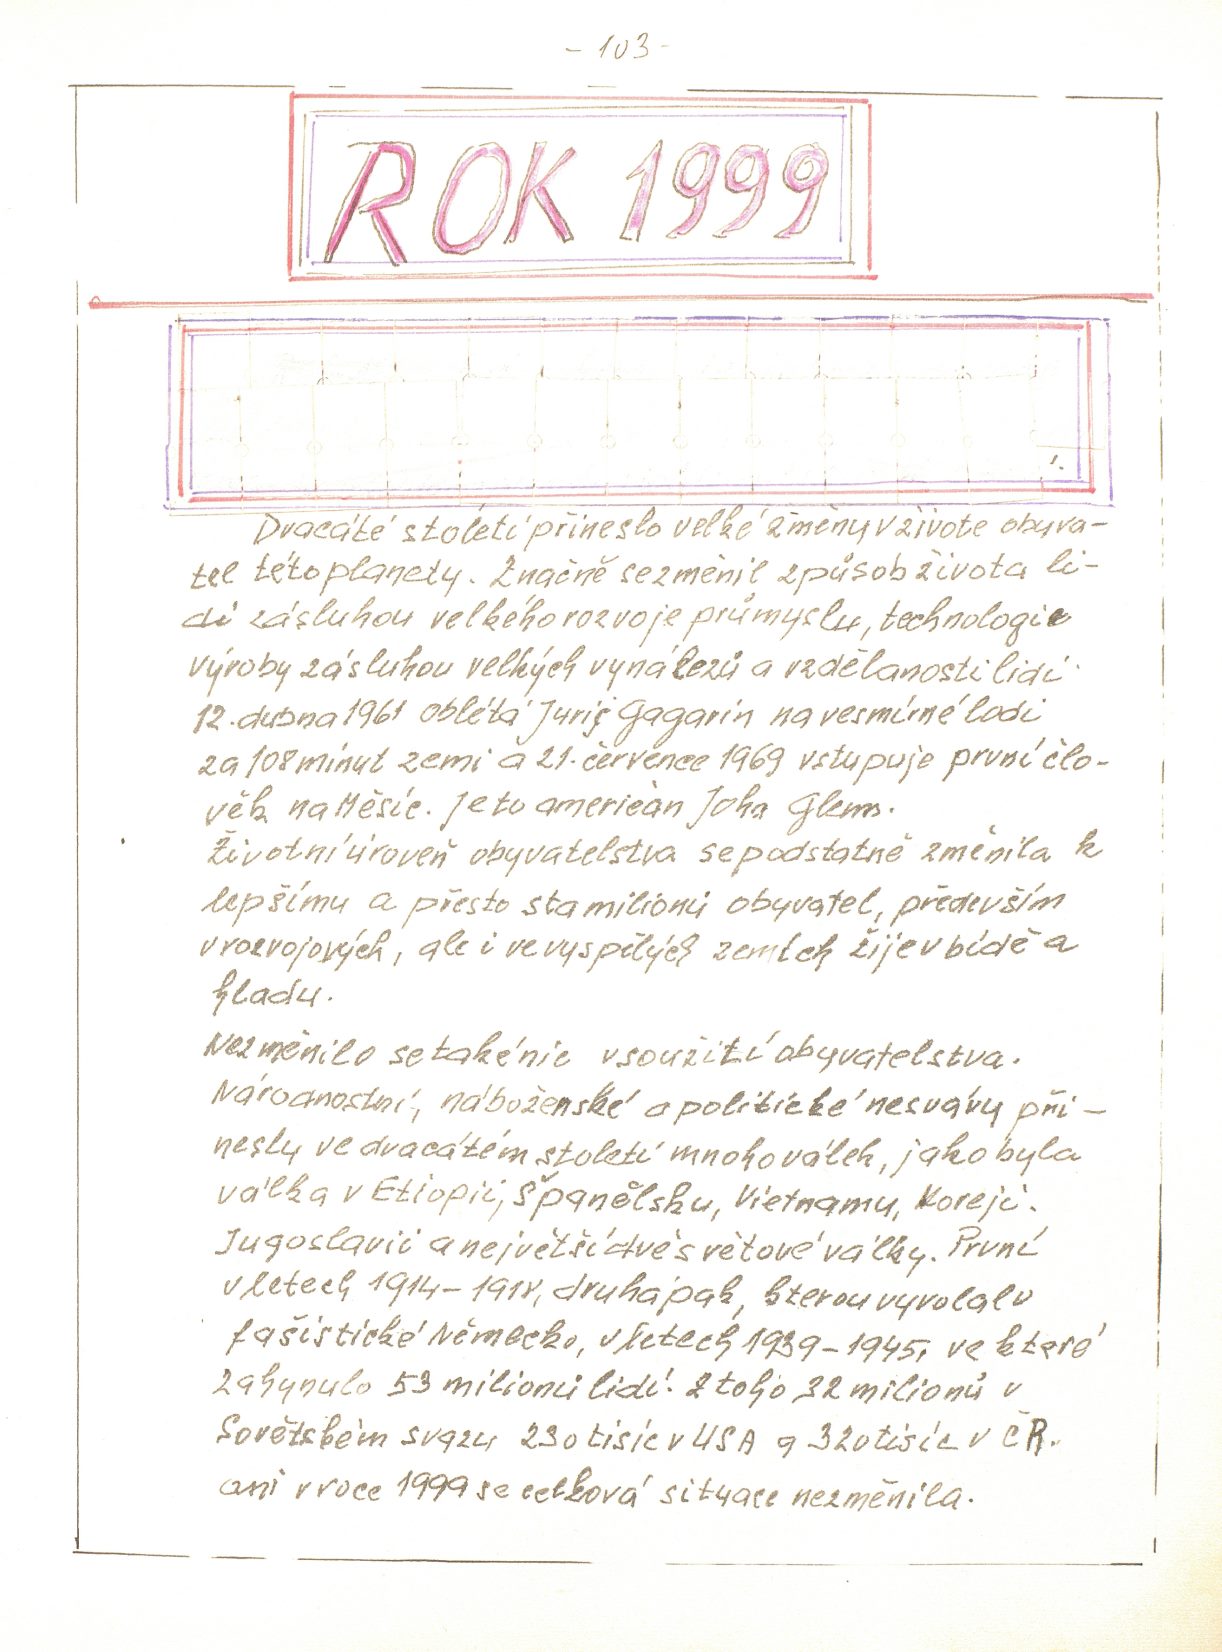 - 103 -
ROK 1999
Dvacáté století přineslo velké změny v živote obyva-
tel této planety. Značně se změnil způsob života li-
dí zásluhou velkého rozvoje průmyslu, technologie
výroby zásluhou velkých vynálezů a vzdělanosti lidí.
12. dubna 1961 oblétá Jurij Gagarin na vesmírné lodi
za 108 minut zemi a 21. července 1969 vstupuje první člo-
věk na Měsíc. Je to američan John Glenn.
Životní úroveň obyvatelstva se podstatně změnila k
lepšímu a přesto sta milionů obyvatel, především
v rozvojových, ale i ve vyspělých zemích žije v bídě a
hladu.
Nezměnilo se také nic v soužití obyvatelstva.
Národnostní, náboženské a politické nesváry při-
nesly ve dvacátém století mnoho válek, jako byla
válka v Etiopii, Španělsku, Vietnamu, Koreji.
Jugoslavii a největší dvě světové války. První
v letech 1914-1918, druhá pak, kterou vyvolalo
fašistické Německo, v letech 1939-1945, ve které
zahynulo 53 milionů lidí. Z toho 32 milionů v
Sovětském svazu 230 tisíc v USA a 320 tisíc v ČR.
ani v roce 1999 se celková situace nezměnila.